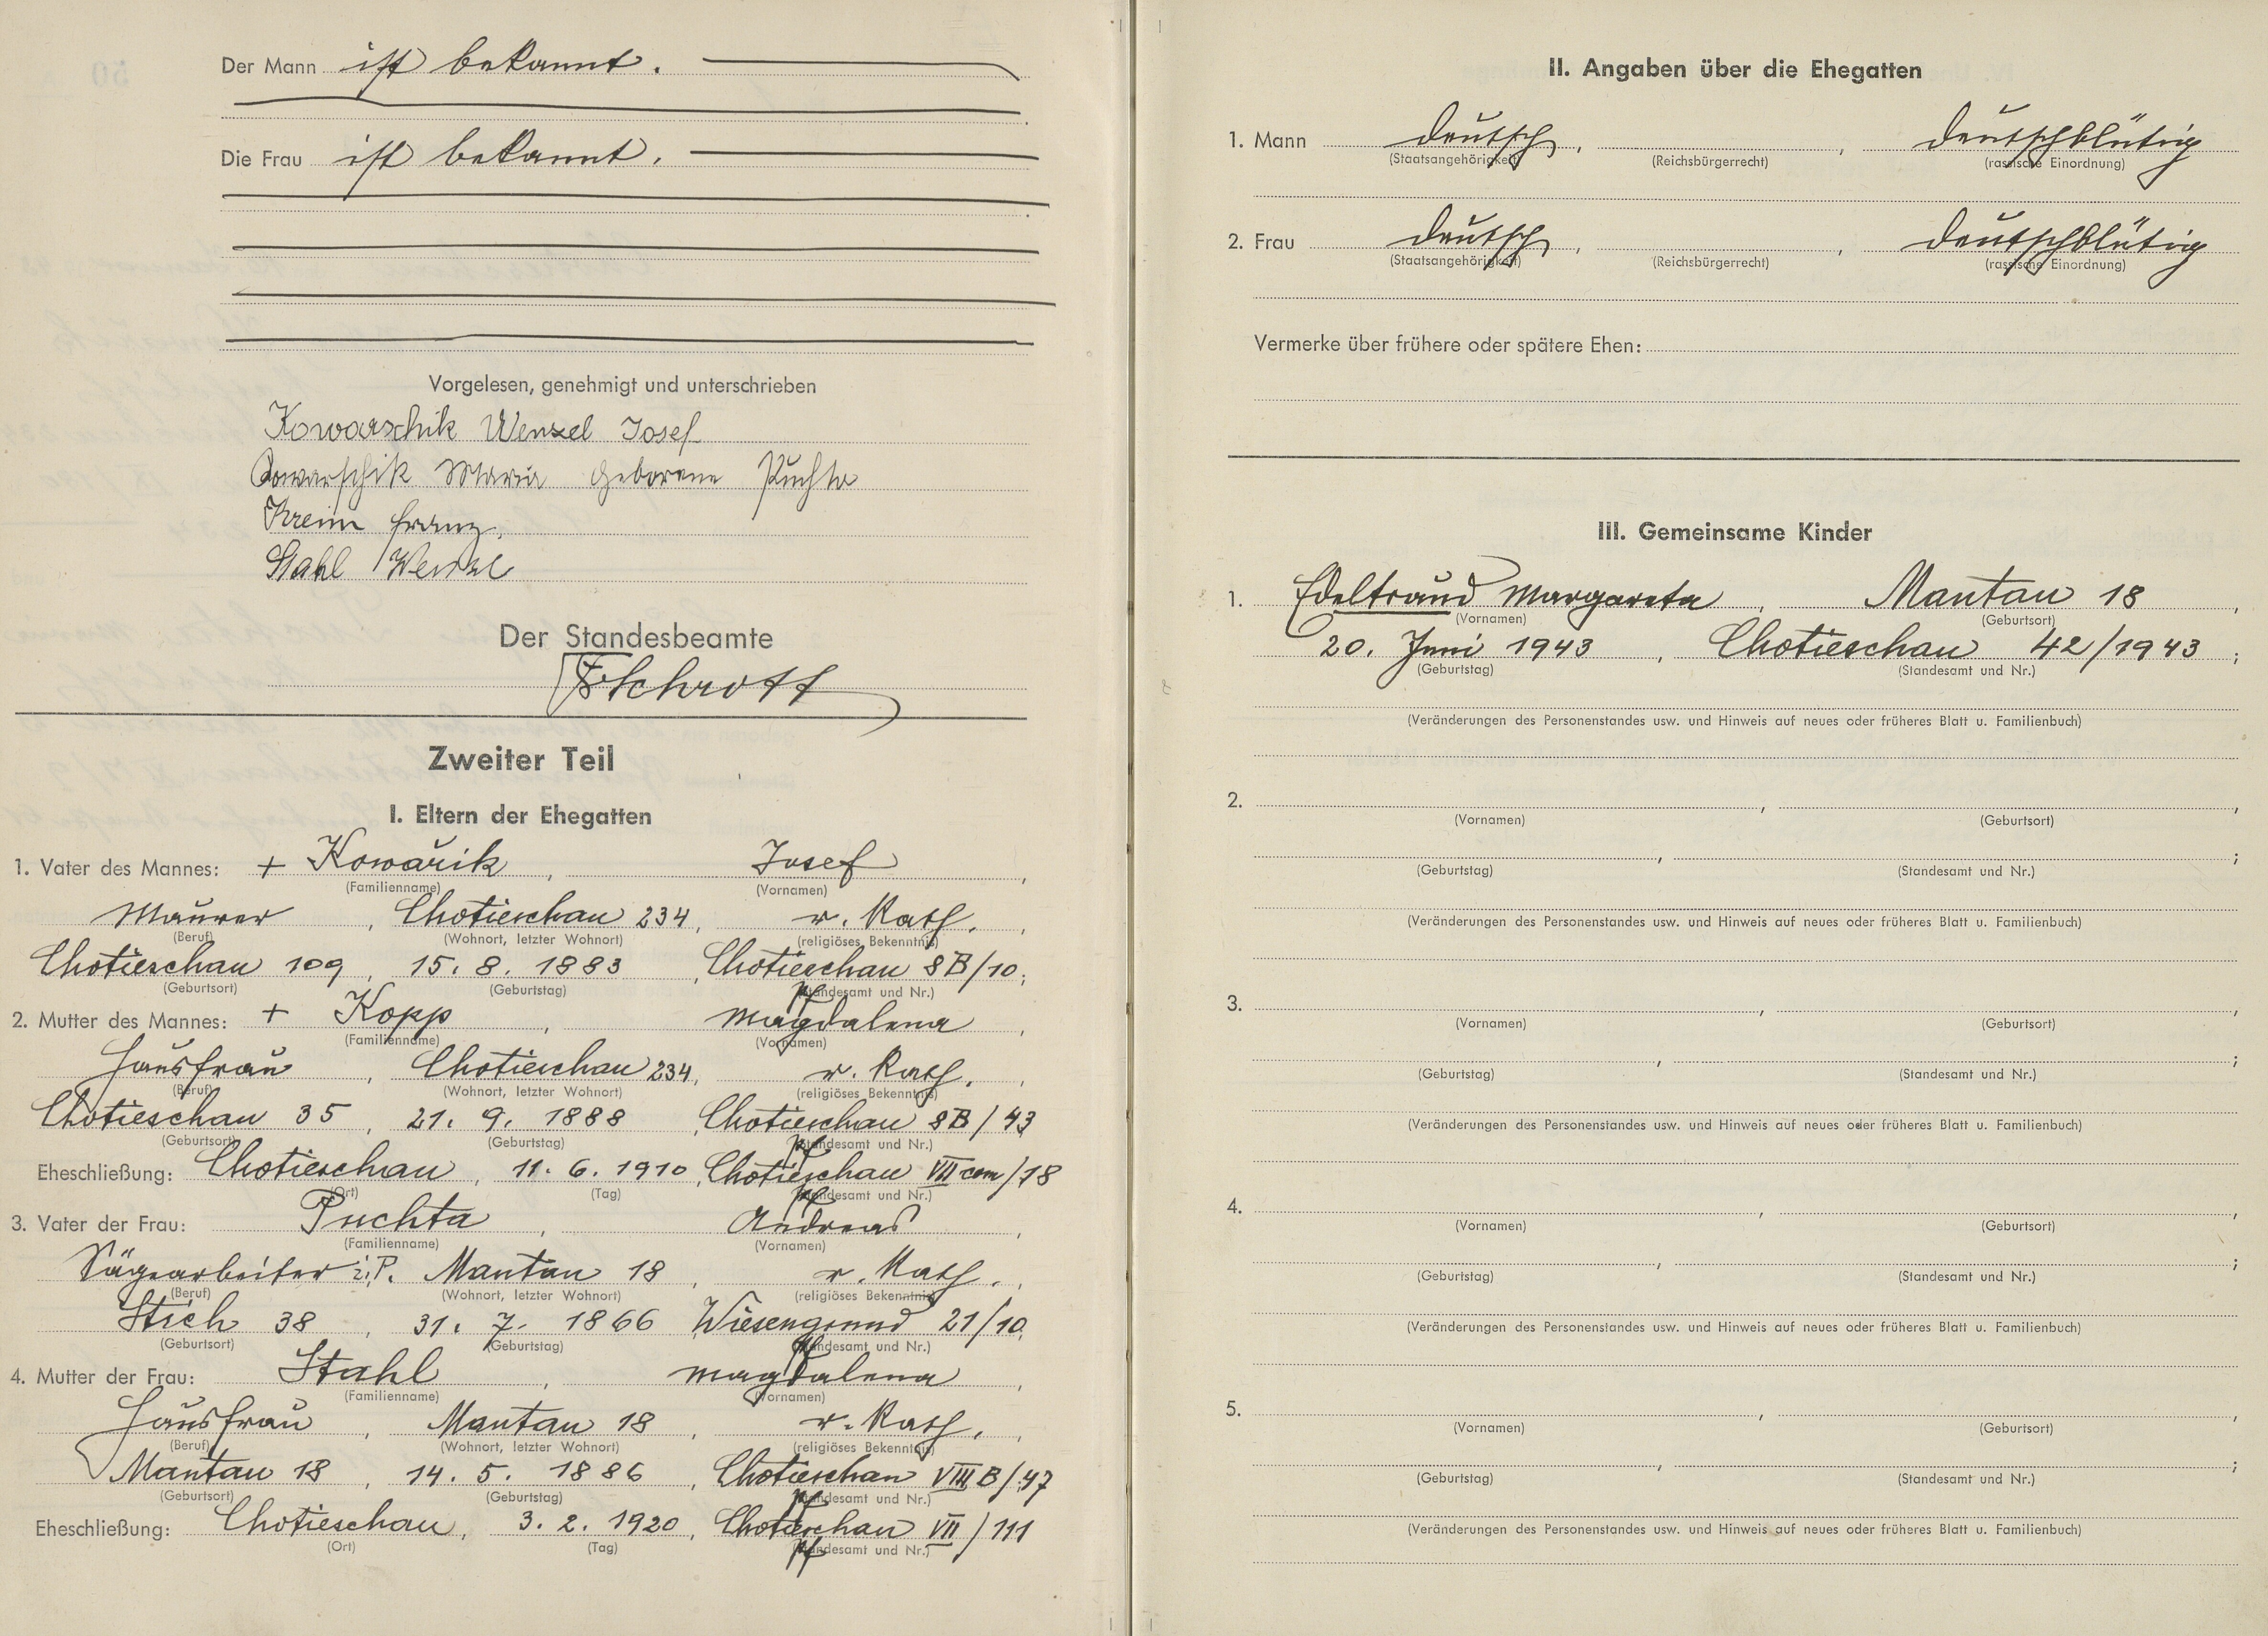 Der Mann ist bekannt.
Die Frau ist bekannt.
Vorgelesen, genehmigt und unterschrieben
Kowarschik Wenzel Josef
Kowarschik Maria geborene Puchta
Kreim Franz.
Stahl Wenzel
Der Standesbeamte
Schrott
Zweiter Teil
I. Eltern der Ehegatten
1. Vater des Mannes: + Kowařik, Josef,
(Familienname) (Vornamen)
Maurer, Chotieschau 234, r. kath.,
(Beruf) (Wohnort, letzter Wohnort) (religiöses Bekenntnis)
Chotieschau 109, 15. 8. 1883, Chotieschau 8B/10;
(Geburtsort) (Geburtstag) (Standesamt und Nr.)
2. Mutter des Mannes: + Kopp, Magdalena,
(Familienname) (Vornamen)
Hausfrau, Chotieschau 234, r. kath.,
(Beruf) (Wohnort, letzter Wohnort) (religiöses Bekenntnis)
Chotieschau 35, 21. 9. 1888, Chotieschau 8B/43
(Geburtsort) (Geburtstag) (Standesamt und Nr.)
Eheschließung: Chotieschau, 11. 6. 1910, Chotieschau VII com/18
(Ort) (Tag) (Standesamt und Nr.)
3. Vater der Frau: Puchta, Andreas,
(Familienname) (Vornamen)
Sägearbeiter i.P. Mantau 18, r. kath.,
(Beruf) (Wohnort, letzter Wohnort) (religiöses Bekenntnis)
Stich 38, 31. 7. 1866 Wiesengrund 21/10
(Geburtsort) (Geburtstag) (Standesamt und Nr.)
4. Mutter der Frau: Stahl, Magdalena,
(Familienname) (Vornamen)
Hausfrau, Mantau 18, r. kath.,
(Beruf) (Wohnort, letzter Wohnort) (religiöses Bekenntnis)
Mantau 18, 14. 5. 1886, Chotieschau VIII B/47
(Geburtsort) (Geburtstag) (Standesamt und Nr.)
Eheschließung: Chotieschau, 3. 2. 1920, Chotieschau VII/111
(Ort) (Tag) (Standesamt und Nr.)
II. Angaben über die Ehegatten
1. Mann deutsch, , deutschblütig
(Staatsangehörigkeit) (Reichsbürgerrecht) (rassische Einordnung)
2. Frau deutsch, , deutschblütig
(Staatsangehörigkeit) (Reichsbürgerrecht) (rassische Einordnung)
Vermerke über frühere oder spätere Ehen:
III. Gemeinsame Kinder
1. Edeltraud Margareta, Mantau 18,
(Vornamen) (Geburtsort)
20. Juni 1943, Chotieschau 42/1943;
(Geburtstag) (Standesamt und Nr.)
(Veränderungen des Personenstandes usw. und Hinweis auf neues oder früheres Blatt u. Familienbuch)
2. , ,
(Vornamen) (Geburtsort)
, ;
(Geburtstag) (Standesamt und Nr.)
(Veränderungen des Personenstandes usw. und Hinweis auf neues oder früheres Blatt u. Familienbuch)
3. , ,
(Vornamen) (Geburtsort)
, ;
(Geburtstag) (Standesamt und Nr.)
(Veränderungen des Personenstandes usw. und Hinweis auf neues oder früheres Blatt u. Familienbuch)
4. , ,
(Vornamen) (Geburtsort)
, ;
(Geburtstag) (Standesamt und Nr.)
(Veränderungen des Personenstandes usw. und Hinweis auf neues oder früheres Blatt u. Familienbuch)
5. , ,
(Vornamen) (Geburtsort)
, ;
(Geburtstag) (Standesamt und Nr.)
(Veränderungen des Personenstandes usw. und Hinweis auf neues oder früheres Blatt u. Familienbuch)